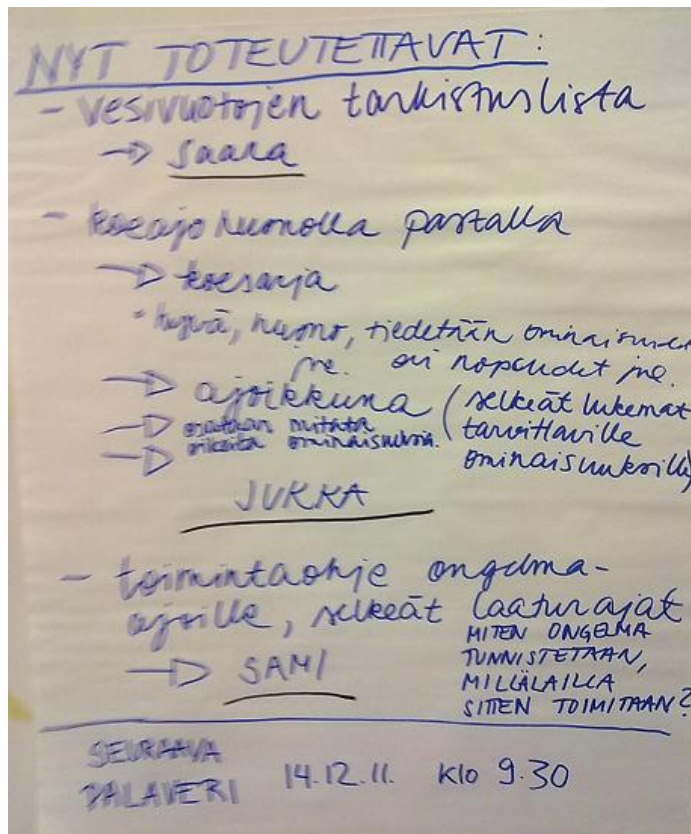 NYT TOTEUTETTAVAT:
- vesivuotojen tarkistuslista
→ Saara
- koeajo huonolla pastalla
→ koesarja
- hyvä, huono, tiedetään ominaisuudet
jne. eri nopeudet jne.
→ ajoikkuna (selkeät lukemat
→ osataan mitata tarvittaville
→ oikeita ominaisuuksia. ominaisuuksille)
JUKKA
- toimintaohje ongelma-
ajoille, selkeät laaturajat
MITEN ONGELMA
TUNNISTETAAN,
→ SAMI
MILLÄLAILLA
SITTEN TOIMITAAN?
SEURAAVA
PALAVERI 14.12.11. klo 9.30